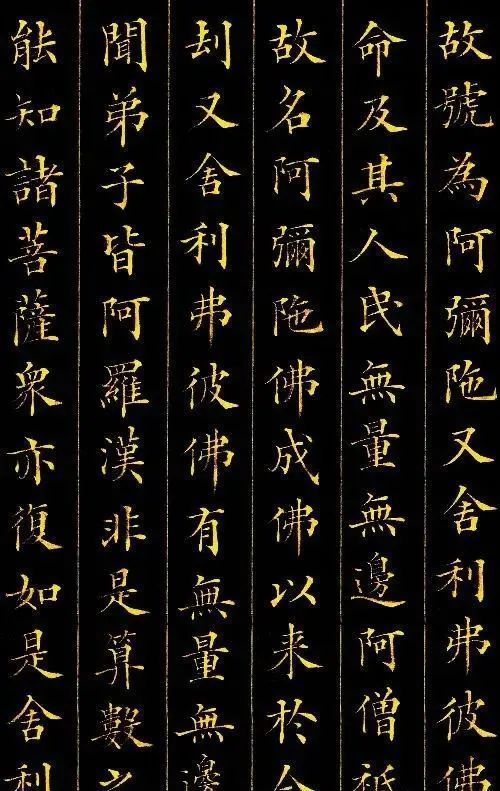 故號為阿彌陁又舍利弗彼佛
命及其人民無量無邊阿僧祇
故名阿彌陁佛成佛以来於今
刼又舍利弗彼佛有無量無邊
聞弟子皆阿羅漢非是算數之
能知諸菩薩衆亦復如是舍利